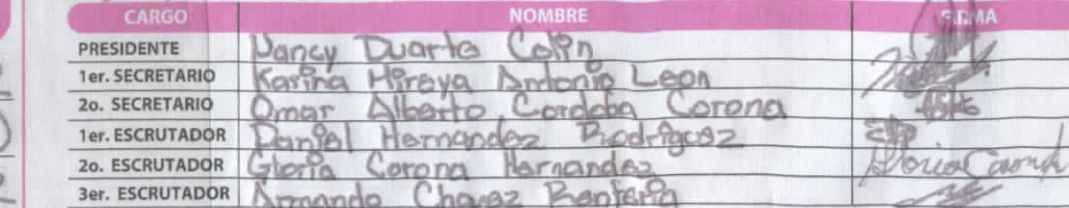 CARGO NOMBRE FIRMA
PRESIDENTE Nancy Duarte Colin
1er. SECRETARIO Karina Mireya Antonio Leon
2o. SECRETARIO Omar Alberto Cordoba Corona
1er. ESCRUTADOR Daniel Hernandez Rodriguez
2o. ESCRUTADOR Gloria Corona Hernandez Gloria Corona
3er. ESCRUTADOR Armando Chavez Renteria